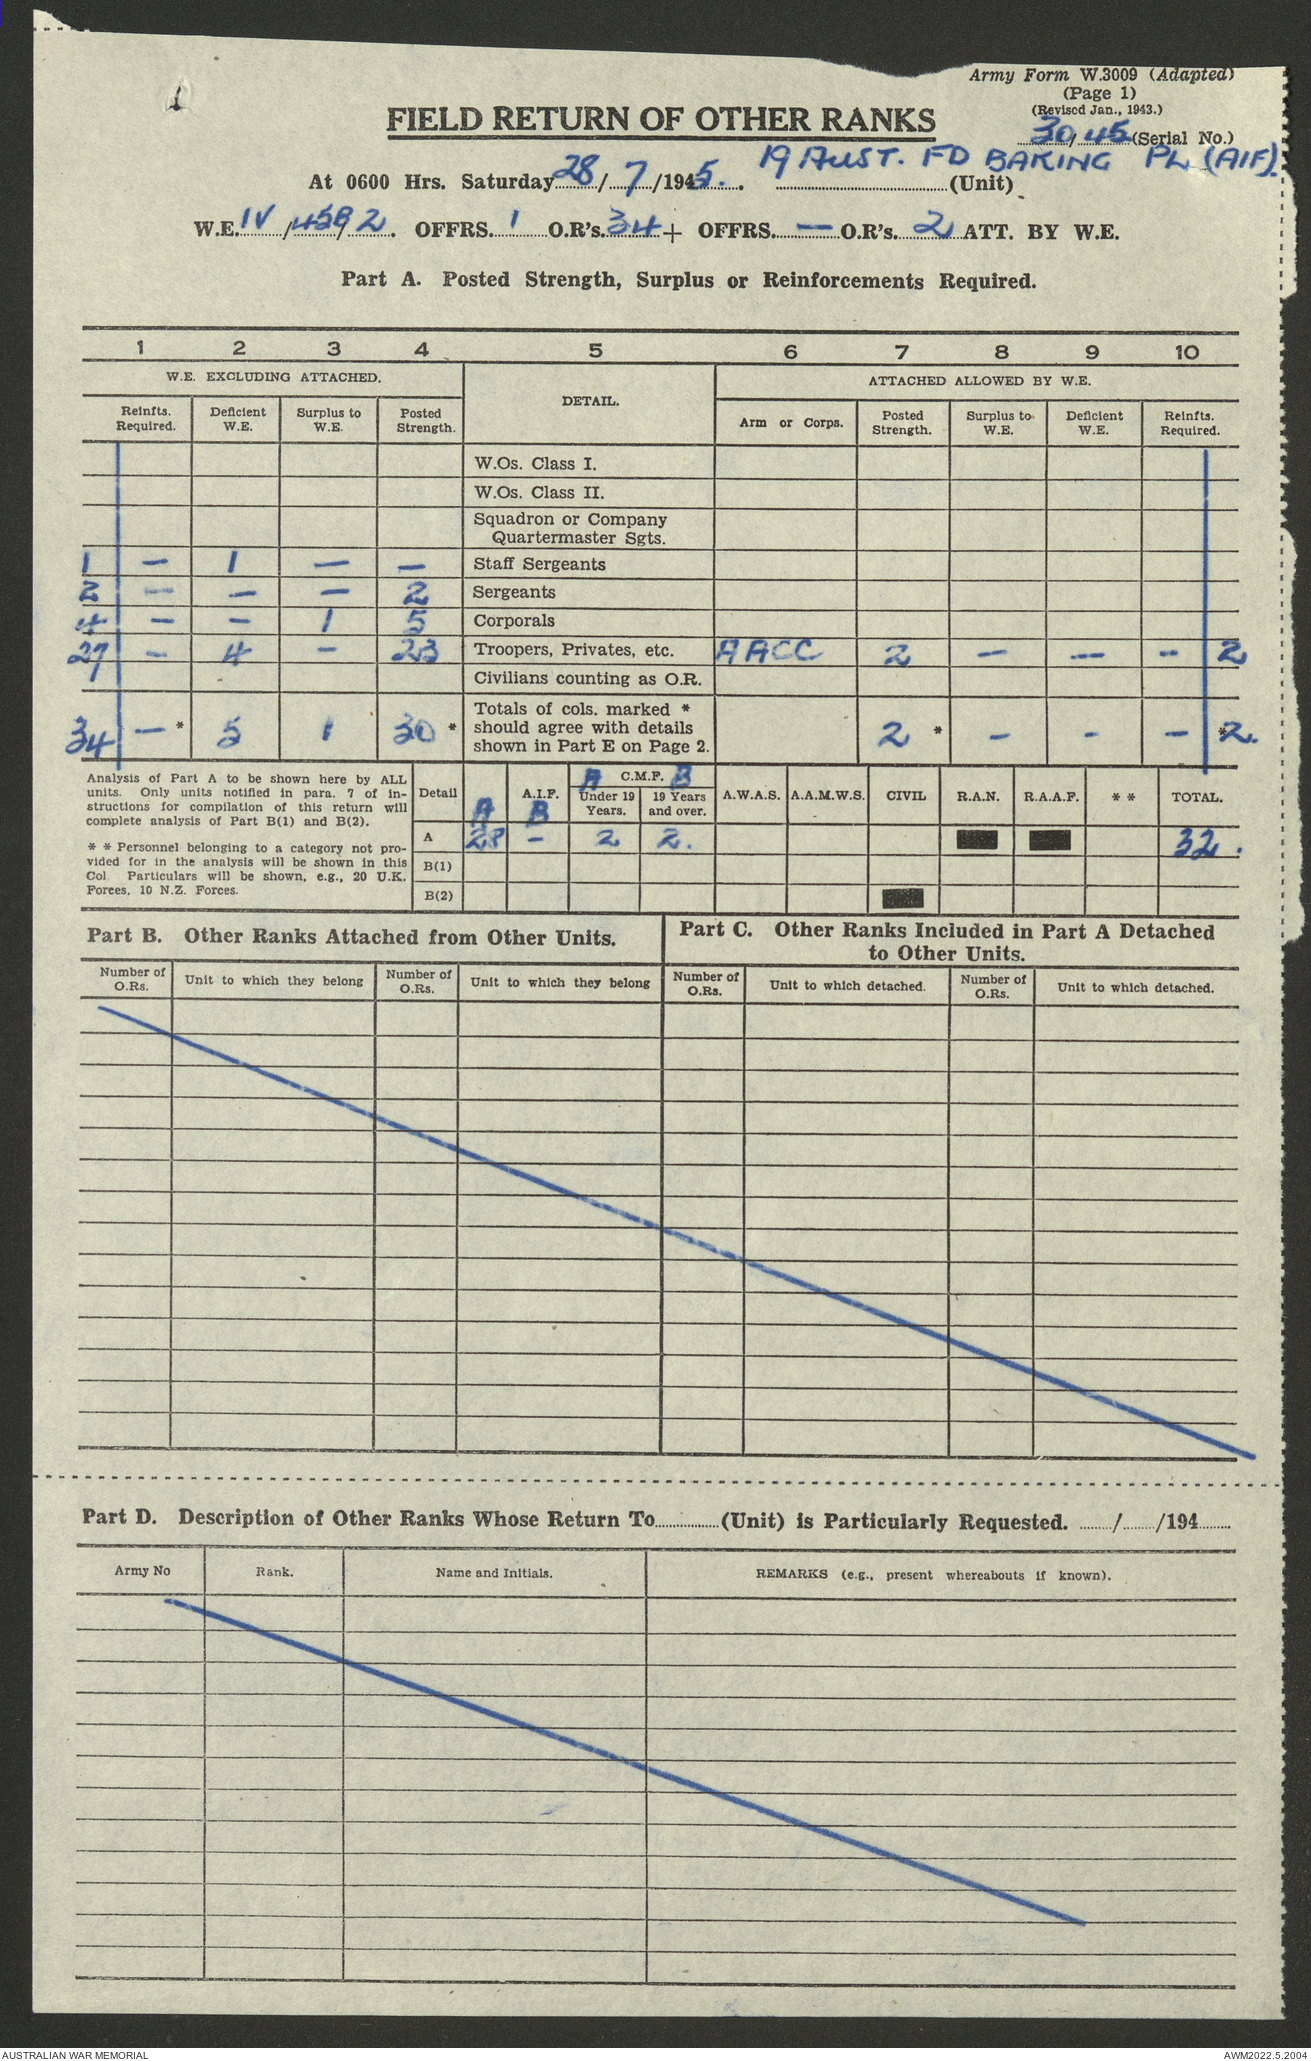 1
Army Form W.3009 (Adapted)
(Page 1)
(Revised Jan., 1943.)
FIELD RETURN OF OTHER RANKS
30/45 (Serial No.)
19 AUST. FD BAKING PL (AIF).
At 0600 Hrs. Saturday 28/7/1945. (Unit)
W.E. IV/45B/2. OFFRS. 1 O.R's. 34 + OFFRS. — O.R's. 2 ATT. BY W.E.
Part A. Posted Strength, Surplus or Reinforcements Required.
1 2 3 4 5 6 7 8 9 10
W.E. EXCLUDING ATTACHED. DETAIL. ATTACHED ALLOWED BY W.E.
Reinfts. Required. Deficient W.E. Surplus to W.E. Posted Strength. Arm or Corps. Posted Strength. Surplus to W.E. Deficient W.E. Reinfts. Required.
W.Os. Class I.
W.Os. Class II.
Squadron or Company
Quartermaster Sgts.
1 — 1 — — Staff Sergeants
2 — — — 2 Sergeants
4 — — 1 5 Corporals
27 — 4 — 23 Troopers, Privates, etc. AACC 2 — — — 2
Civilians counting as O.R.
Totals of cols. marked *
should agree with details
shown in Part E on Page 2.
34 — * 5 1 30 * 2 * — - — * 2.
Analysis of Part A to be shown here by ALL
units. Only units notified in para. 7 of in-
structions for compilation of this return will
complete analysis of Part B(1) and B(2).
* * Personnel belonging to a category not pro-
vided for in the analysis will be shown in this
Col. Particulars will be shown, e.g., 20 U.K.
Forces, 10 N.Z. Forces.
Detail A A.I.F. B A C.M.F. B A.W.A.S. A.A.M.W.S. CIVIL R.A.N. R.A.A.F. * * TOTAL.
Under 19 Years. 19 Years and over.
A 28 - 2 2. 32.
B(1)
B(2)
Part B. Other Ranks Attached from Other Units.
Part C. Other Ranks Included in Part A Detached
to Other Units.
Number of O.Rs. Unit to which they belong Number of O.Rs. Unit to which they belong Number of O.Rs. Unit to which detached. Number of O.Rs. Unit to which detached.
Part D. Description of Other Ranks Whose Return To............(Unit) is Particularly Requested. ......./......./194.......
Army No Rank. Name and Initials. REMARKS (e.g., present whereabouts if known).
AUSTRALIAN WAR MEMORIAL
AWM2022.5.2004